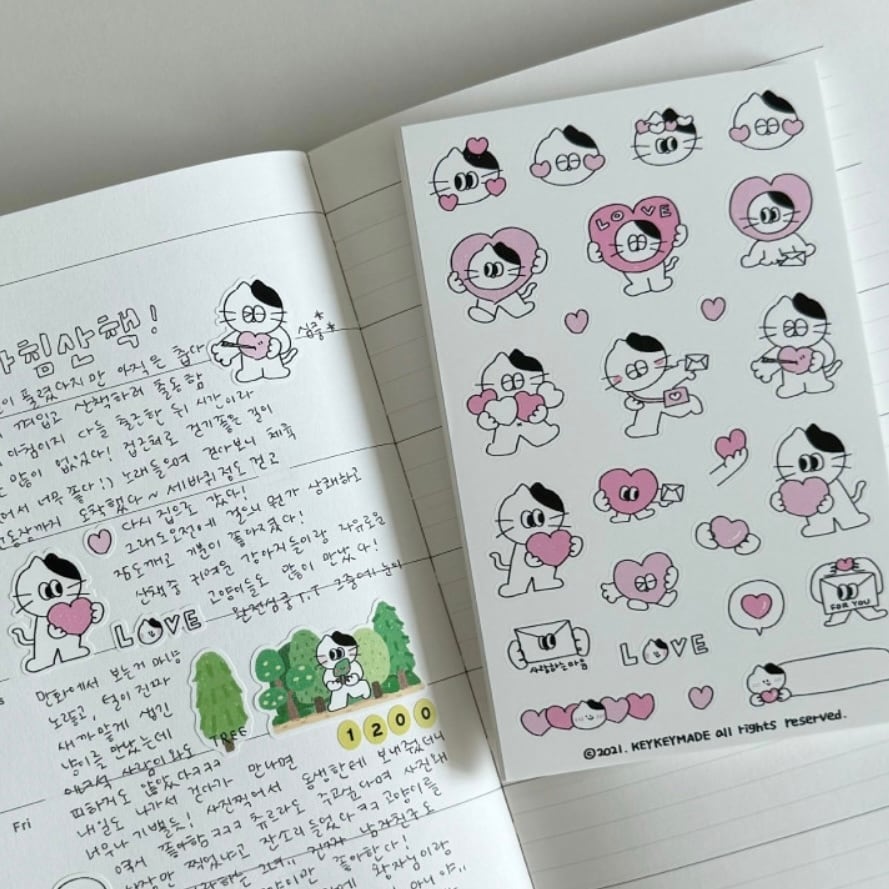 아침산책!
심쿵*
풀렸다지만 아직은 춥다
껴입고 산책하러 출동함
아침이지 다들 출근한 뒤 시간이라
많이 없었다! 집근처로 걷기좋은 길이
있어서 너무 좋다!) 노래들으며 걷다보니 체육
운동장까지 도착했다~ 세바퀴정도 걷고
다시 집으로 갔다!
그래도오전에 걸으니 뭔가 상쾌하고
잠도깨고 기분이 좋아졌다!
산책중 귀여운 강아지들이랑 자유로운
고양이들도 많이 만났다!
완전심쿵T.T 그중에
LOVE
만화에서 보는거 마냥
노랗고, 털이 진짜
새까맣게 생긴
냥이를 만났는데
사람이 와도
피하지도 않았다ㅋㅋㅋ
TREE
1200
Fri
내일도 나가서 걷다가 만나면
너무나 기쁠듯! 사진찍어서 동생한테 보내줬더니
역시 좋아함ㅋㅋㅋ 츄르라도 주고싶다며 사진왜
만 찍었냐고 잔소리 들었다ㅋㅋ 고양이를
남자친구도
좋아한다!
왕자님이랑
LOVE
사랑하는마음
LOVE
FOR YOU
©2021. KEYKEYMADE all rights reserved.